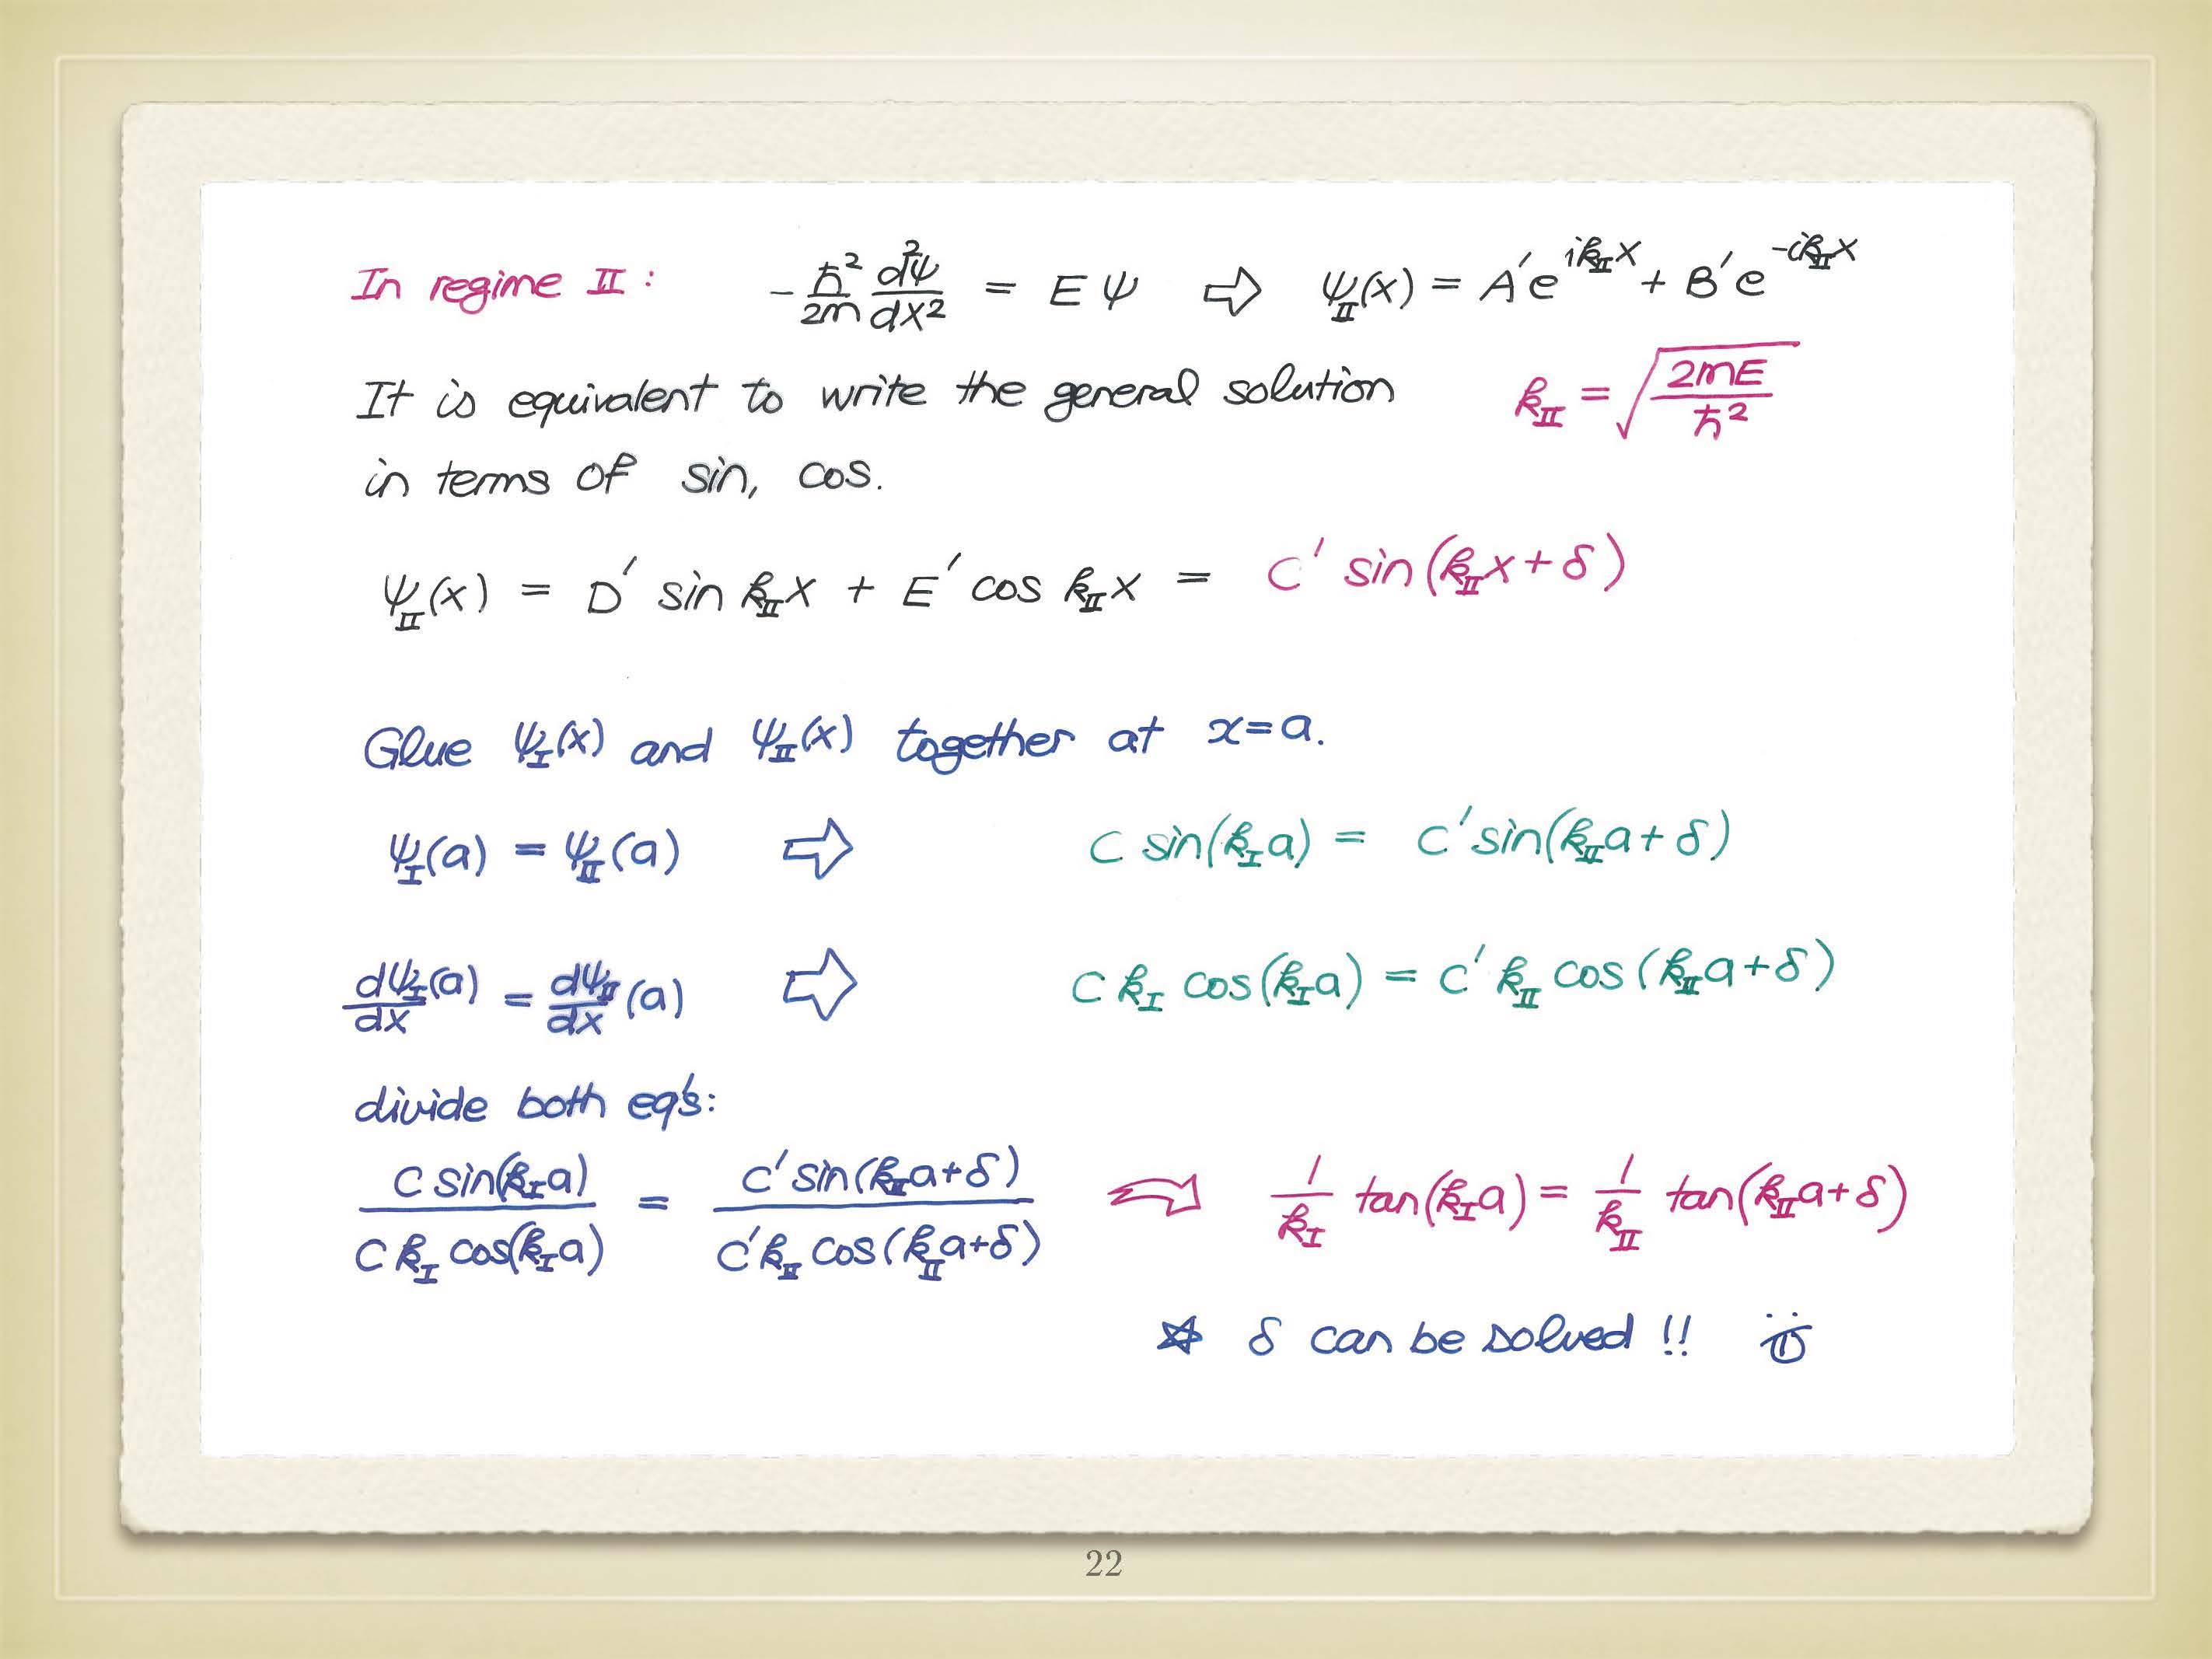 In regime II : -ħ²/2m d²ψ/dx² = E ψ ⇨ ψ_II(x) = A′e^{ik_II x} + B′e^{-ik_II x}
It is equivalent to write the general solution k_II = √(2mE/ħ²)
in terms of sin, cos.
ψ_II(x) = D′ sin k_II x + E′ cos k_II x = C′ sin(k_II x + δ)
Glue ψ_I(x) and ψ_II(x) together at x=a.
ψ_I(a) = ψ_II(a) ⇨ C sin(k_I a) = C′ sin(k_II a + δ)
dψ_I/dx (a) = dψ_II/dx (a) ⇨ C k_I cos(k_I a) = C′ k_II cos(k_II a + δ)
divide both eq's:
C sin(k_I a) / C k_I cos(k_I a) = C′ sin(k_II a+δ) / C′ k_II cos(k_II a+δ) ⇨ 1/k_I tan(k_I a) = 1/k_II tan(k_II a+δ)
☆ δ can be solved !!
22